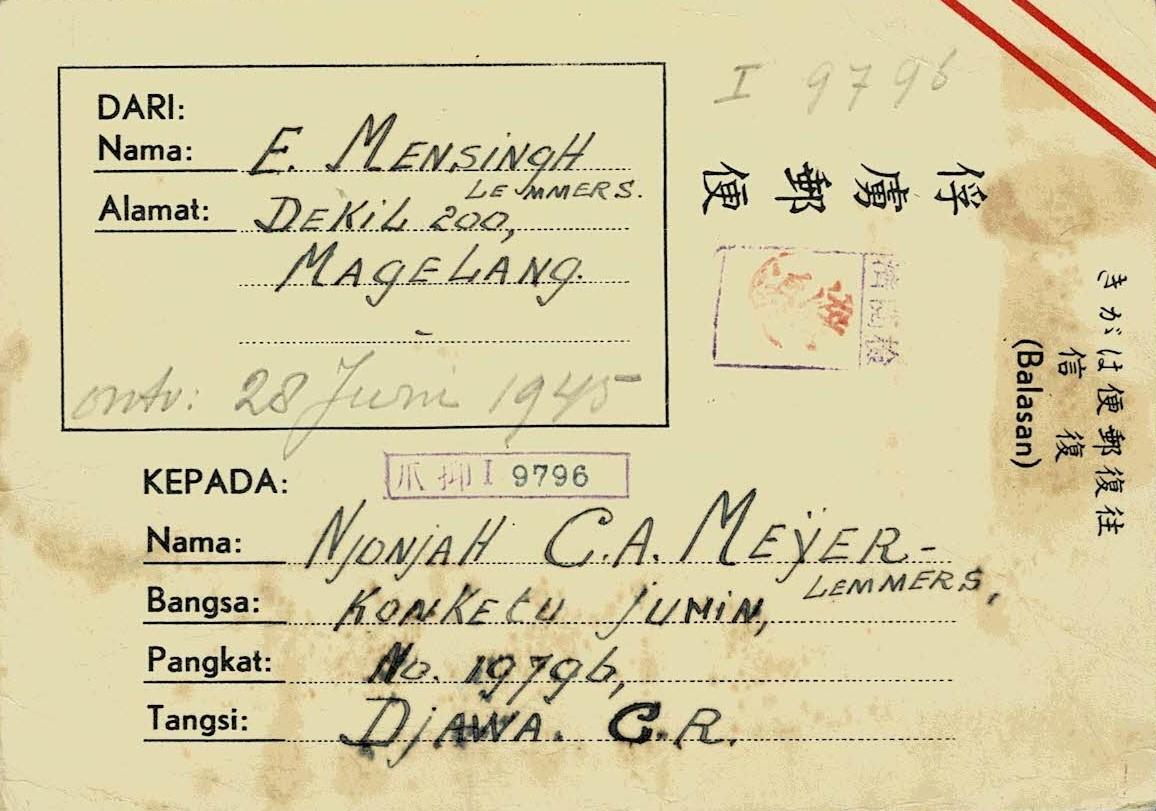 I 9796
DARI:
Nama: E. MENSINGH
LEMMERS.
Alamat: DEKIL 200,
MAGELANG.
ontv: 28 Juni 1945
俘虜郵便
往復郵便はがき
復信
(Balasan)
KEPADA:
爪抑 I 9796
Nama: NJONJAH C.A. MEŸER-
LEMMERS,
Bangsa: KONKETU JUMIN,
Pangkat: No. 19796,
Tangsi: DJAWA. C.R.